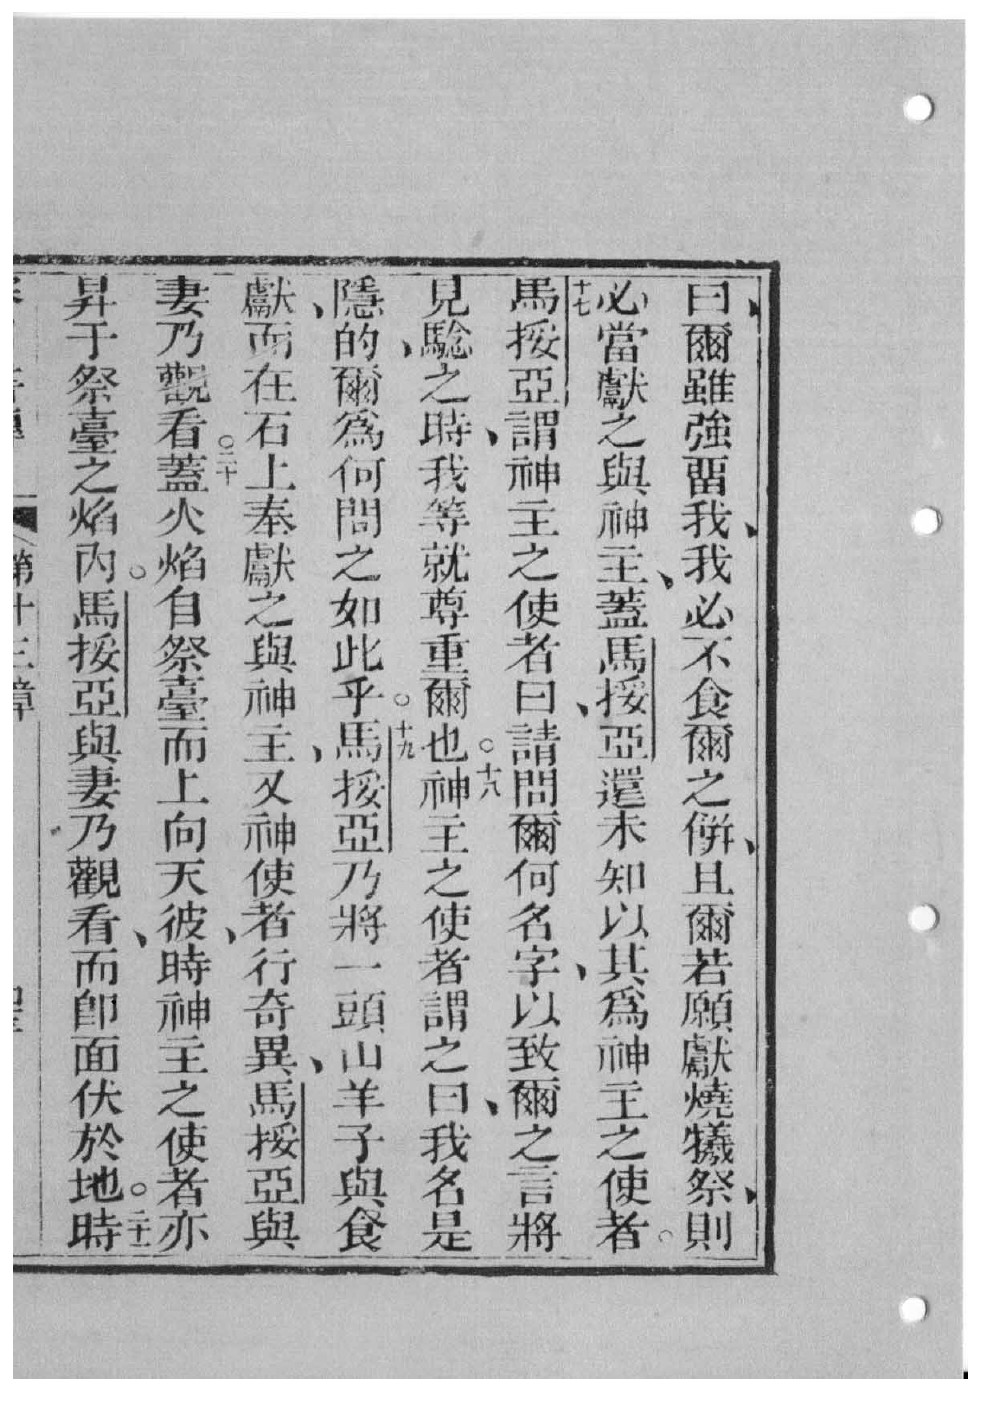 曰爾雖強畱我、我必不食爾之餅、且爾若願獻燒犧祭、則
必當獻之與神主、蓋馬挼亞還未知以其爲神主之使者。
十七馬挼亞謂神主之使者曰、請問爾何名字、以致爾之言將
見騐之時、我等就尊重爾也。十八神主之使者謂之曰、我名是
隱的、爾爲何問之如此乎。十九馬挼亞乃將一頭山羊子與食
獻、而在石上奉獻之與神主、又神使者行奇異、馬挼亞與
妻乃觀看。二十蓋火焰自祭臺而上向天彼、時神主之使者亦
昇于祭臺之焰內。馬挼亞與妻乃觀看、而卽面伏於地。二十一時
第十三章